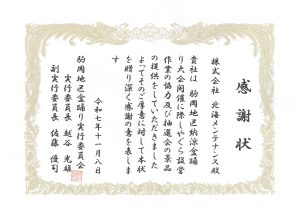 感謝状
株式会社 北海メンテナンス殿
貴社は 駒岡地区納涼盆踊
り大会開催に際しやぐら設営
作業の協力及び抽選会の景品
の提供をしていただきました
よってそのご厚意に対して本状
を贈り深く感謝の意を表しま
す
令和七年十一月八日
駒岡地区盆踊り実行委員会
実行委員長 越谷 光雄
副実行委員長 佐藤 優司